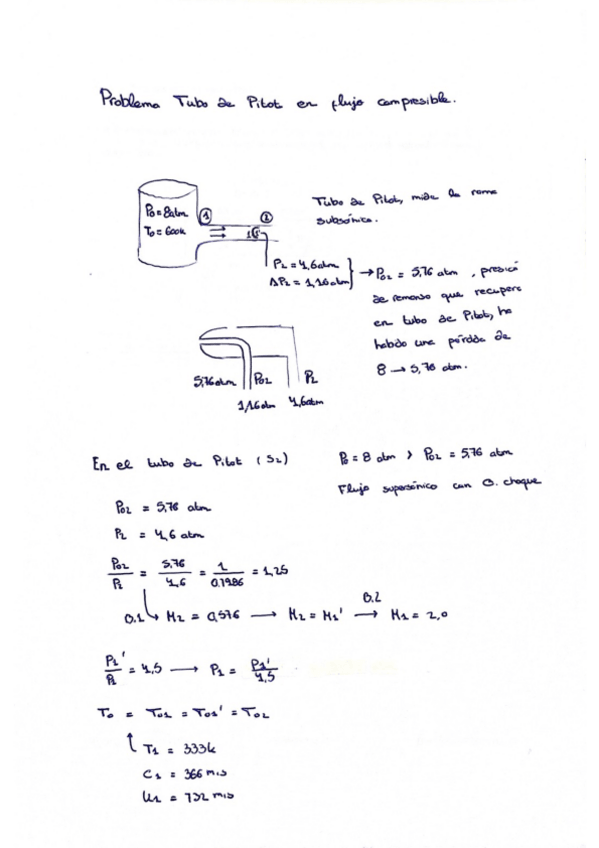 Problema Tubo de Pitot en flujo compresible.
P0 = 8atm
T0 = 600k
1
2
P2 = 4,6atm
ΔP2 = 1,16atm
Tubo de Pitot, mide la rama
subsónica.
→ P02 = 5,76 atm, presión
de remanso que recupera
en tubo de Pitot, ha
habido una pérdida de
8 → 5,76 atm.
5,76atm P02 P2
1,16atm 4,6atm
En el tubo de Pitot (S2)
P0 = 8 atm > P02 = 5,76 atm
Flujo supersónico con O. choque
P02 = 5,76 atm
P2 = 4,6 atm
P02/P2 = 5,76/4,6 = 1/0,7986 = 1,25
0.1 → M2 = 0,576 → M2 = M1' → 0.2 M1 = 2,0
P1'/P1 = 4,5 → P1 = P1'/4,5
T0 = T01 = T01' = T02
T1 = 333k
C1 = 366 m/s
U1 = 732 m/s